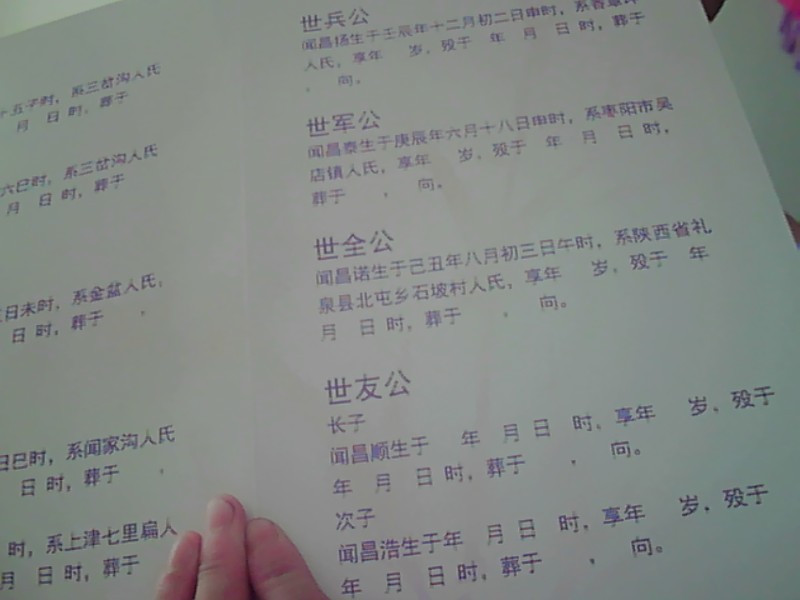 十五子时，系三岔沟人氏
月 日 时，葬于
六巳时，系三岔沟人氏
月 日 时，葬于
日未时，系金盆人氏，
日 时，葬于 ，
日巳时，系闻家沟人氏
日 时，葬于 ，
时，系上津七里扁人
月 日 时，葬于
世兵公
闻昌扬生于壬辰年十二月初二日申时，系香
人氏，享年 岁，殁于 年 月 日 时，葬于
， 向。
世军公
闻昌泰生于庚辰年六月十八日申时，系枣阳市吴
店镇人氏，享年 岁，殁于 年 月 日 时，
葬于 ， 向。
世全公
闻昌诺生于己丑年八月初三日午时，系陕西省礼
泉县北屯乡石坡村人氏，享年 岁，殁于 年
月 日 时，葬于 ， 向。
世友公
长子
闻昌顺生于 年 月 日 时，享年 岁，殁于
年 月 日 时，葬于 ， 向。
次子
闻昌浩生于年 月 日 时，享年 岁，殁于
年 月 日 时，葬于 ， 向。